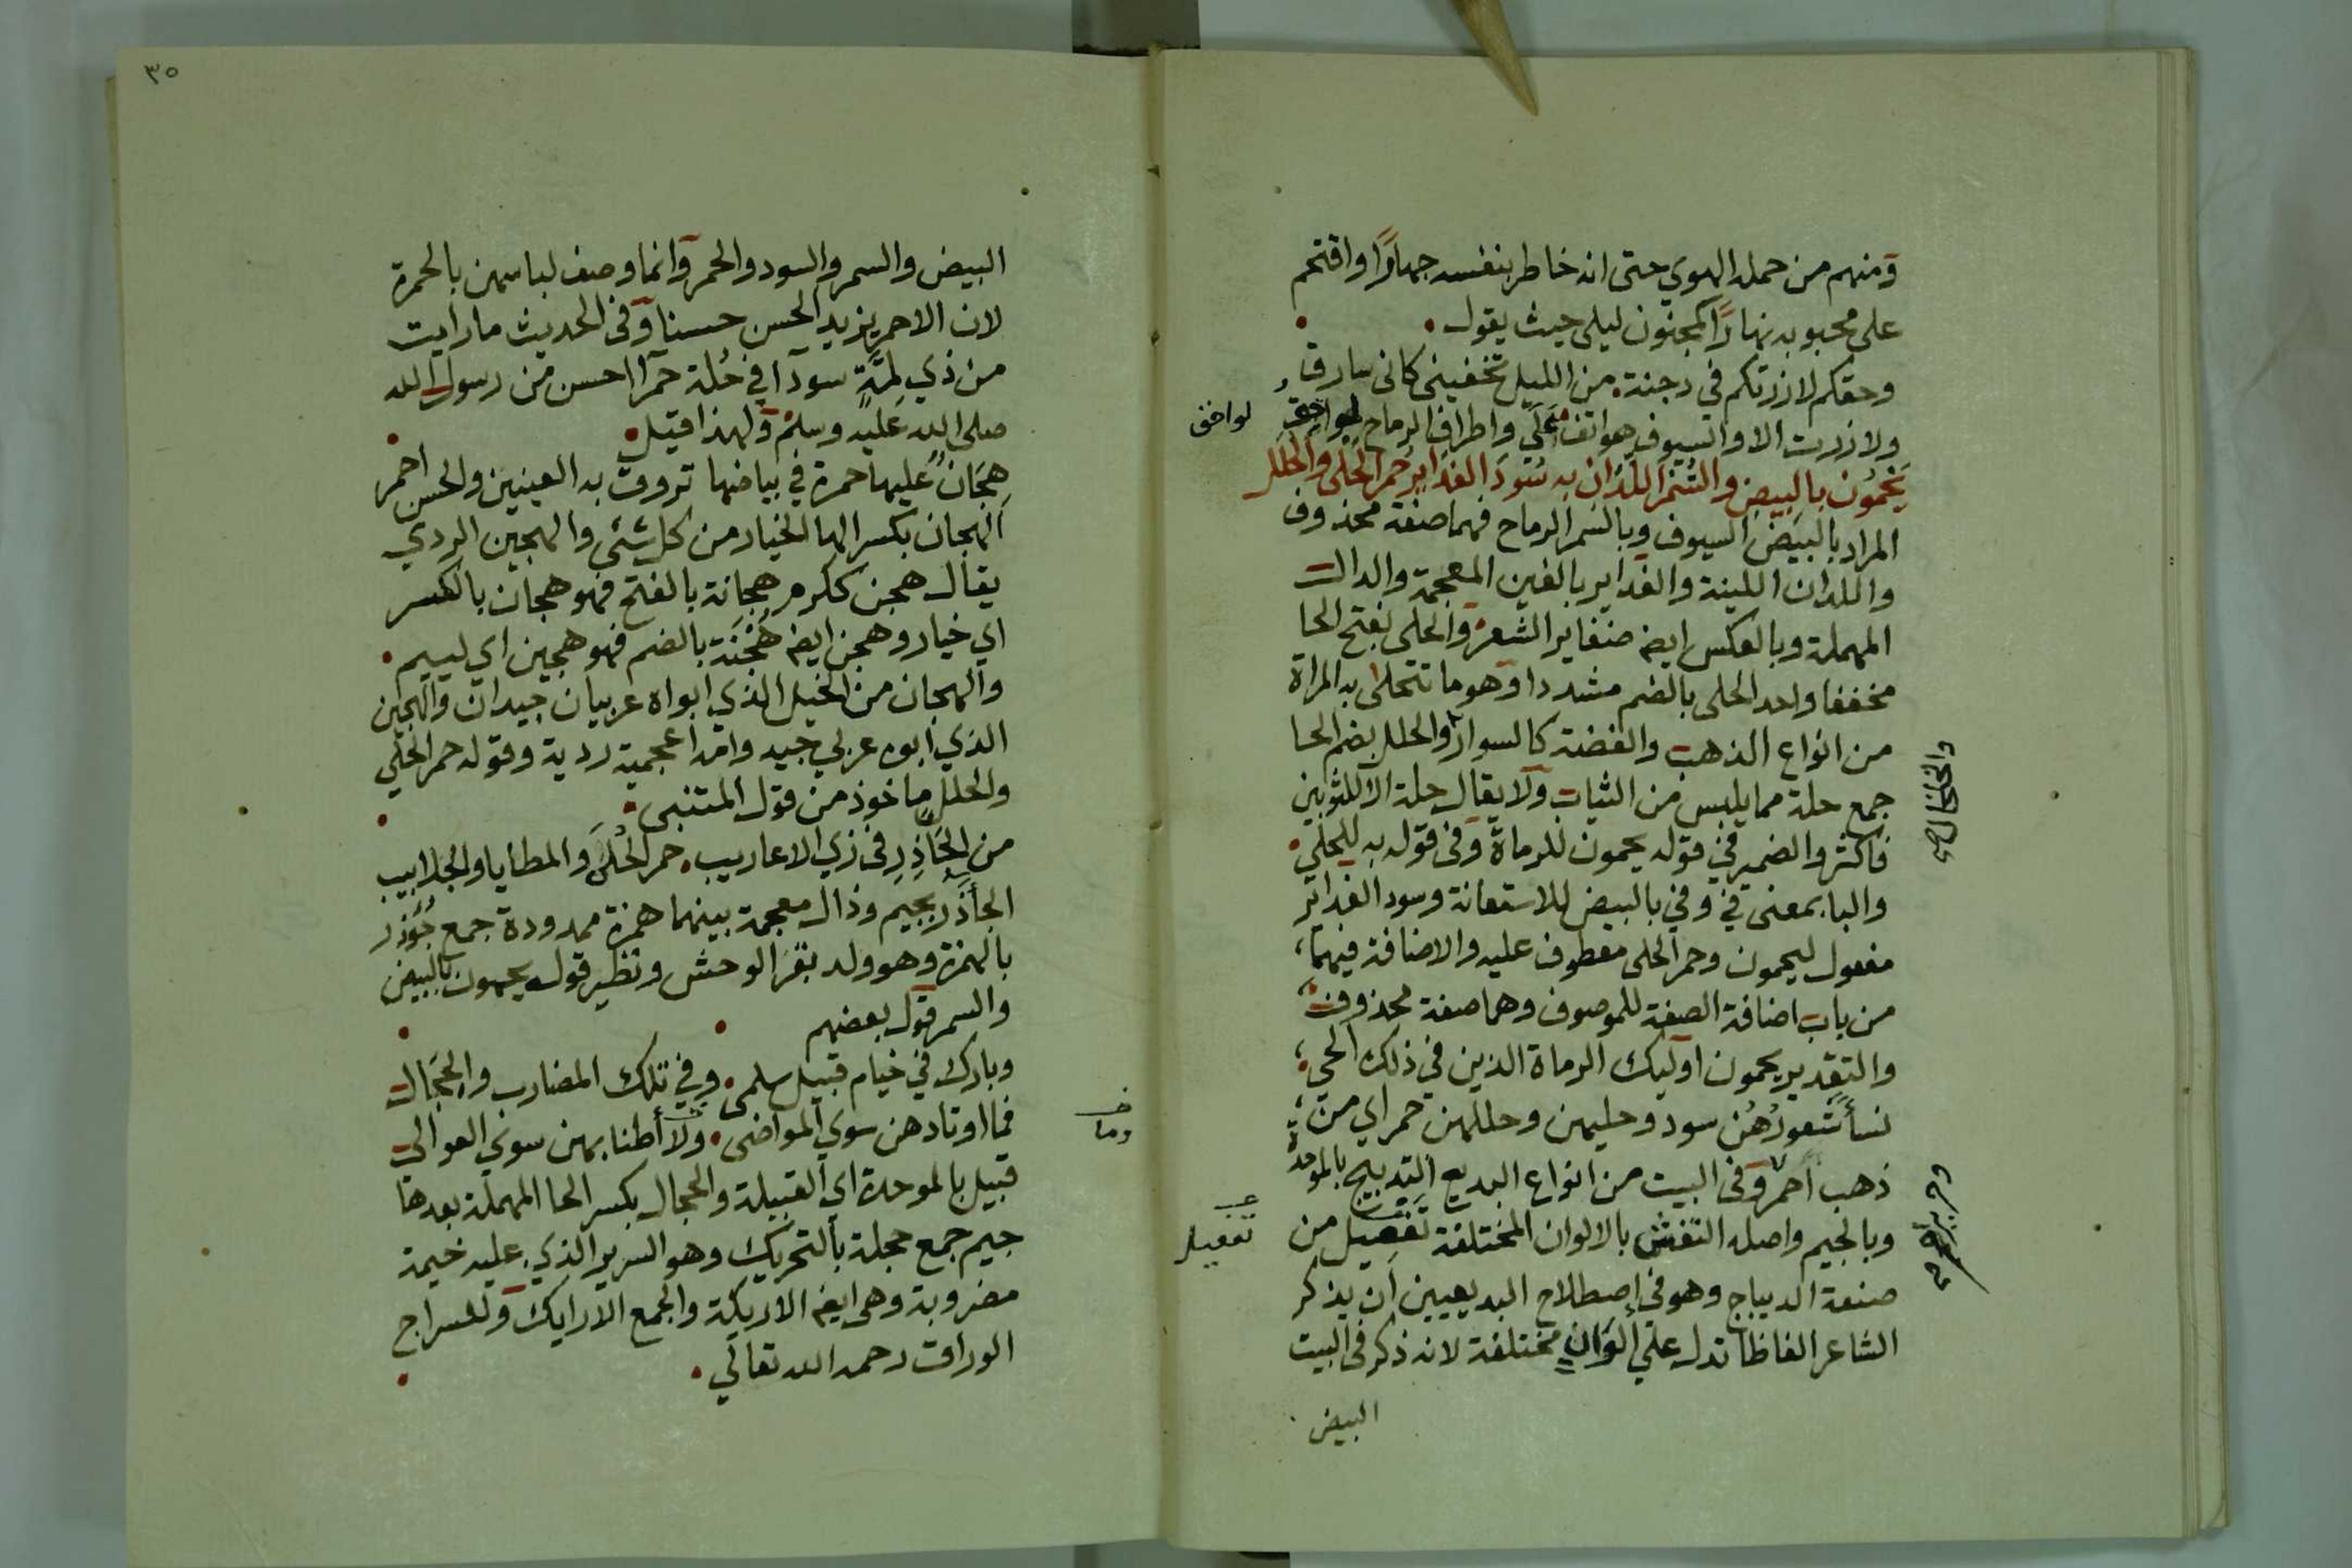 ومنهم من حمله الهوي حتى انه خاطر بنفسه جهارًا واقتحم
على محبوبه نهارًا كمجنون ليلى حيث يقول
وحقكم لا زرتكم في دجنة من الليل تخفيني كاني سارق
ولا زرت الا والسيوف هواتف علي واطراف الرماح لواحق
لواحق
يَحْمُون بالبيض والسُّمْر اللدان به سُودَ الغداير حُمر الحلي والحلل
المراد بالبيض السيوف وبالسمر الرماح فهما صفة محذوف
واللدان اللينة والغداير بالغين المعجمة والدال
المهملة وبالعكس ايضا ضفاير الشعر والحلى بفتح الحا
مخففا واحد الحلى بالضم مشددا وهو ما تتحلى به المراة
من انواع الذهب والفضة كالسوار والحلل بضم الحا
والخلخال صح
جمع حلة مما يلبس من الثياب ولا يقال حلة الا للثوبين
فاكثر والضمير في قوله يحمون للرماة وفى قوله به للحلي
والبا بمعنى في وفي بالبيض للاستعانة وسود الغداير
مفعول ليحمون وحمر الحلى معطوف عليه والاضافة فيهما
من باب اضافة الصفة للموصوف وهما صفة محذوف
والتقدير يحمون اوليك الرماة الذين في ذلك الحي
نسأ شعورُهُن سود وحليهن وحللهن حمر اي من
ذهب احمر وفى البيت من انواع البديع التدبيج بالموحدة
وبالجيم واصله النقش بالالوان المختلفة تفعيل من
تفعيل
صنعة الديباج وهو في اصطلاح البديعيين ان يذكر
الشاعر الفاظا تدل علي الوانٍ مختلفة لانه ذكر فى البيت
البيض
٣٥
البيض والسمر والسود والحمر وانما وصف لباسهن بالحمرة
لان الاحمر يزيد الحسن حسنا وفى الحديث ما رايت
من ذي لِمَّةٍ سودا في حُلة حمرا احسن من رسول الله
صلى الله عليه وسلم ولهذا قيل
هِجَانٌ عليها حمرة في بياضها تروق به العينين والحسن احمر
الهجان بكسر الها الخيار من كل شئ والهجين الردي
يقال هجن ككرم هجانة بالفتح فهو هجان بالكسر
اي خيار وهجن ايضا هُجْنَة بالضم فهو هجين اي لييم
والهجان من الخيل الذي ابواه عربيان جيدان والهجين
الذي ابوه عربي جيد وامه اعجمية ردية وقوله حمر الحلي
والحلل ماخوذ من قول المتنبي
من الجَآذِرِ فى زي الاعاريب حمر الحُلَى والمطايا والجلابيب
الجأذر بجيم وذال معجمة بينهما همزة ممدودة جمع جُؤْذر
بالهمزة وهو ولد بقر الوحش ونظير قوله يحمون بالبيض
والسمر قول بعضهم
وبارك في خيام قبيل سلمى وفي تلك المضارب والحجال
فما اوتادهن سوي المواضى ولا أطنابهن سوي العوالى
وما
قبيل بالموحدة اي القبيلة والحجال بكسر الحا المهملة بعدها
جيم جمع حجلة بالتحريك وهو السرير الذي عليه خيمة
مضروبة وهى ايضا الاريكة والجمع الارايك وللسراج
الوراق رحمه الله تعالي